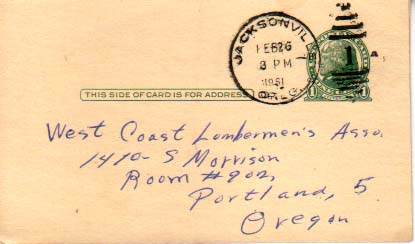 JACKSONVILLE
FEB 26
3 PM
1951
OREG.
1
THIS SIDE OF CARD IS FOR ADDRESS
1
1
West Coast Lumbermen's Asso.
1410- S Morrison
Room #902,
Portland, 5
Oregon